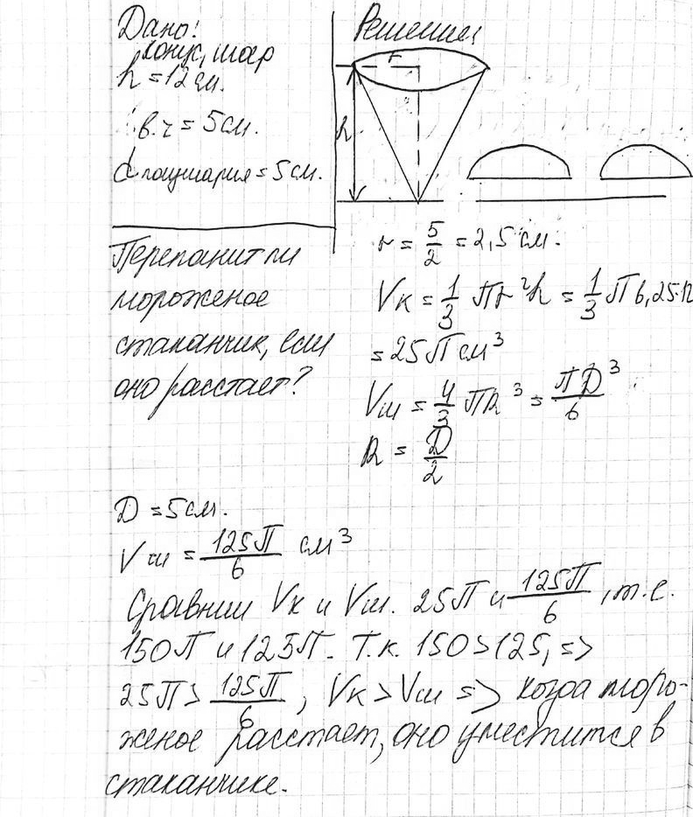 Дано:
конус, шар
h = 12 см.
в. r = 5 см.
d полушария = 5 см.
Перепо­лнит ли
мороженое
стаканчик, если
оно растает?
Решение
r
h
r = 5/2 = 2,5 см.
Vк = 1/3 Пr²h = 1/3 П 6,25·12
= 25П см³
Vш = 4/3 ПR³ = ПD³/6.
R = D/2
D = 5 см.
Vш = 125П/6 см³
Сравним Vк и Vш. 25П и 125П/6, т.е.
150П и 125П. Т.к. 150>125, =>
25П > 125П/6, Vк > Vш => когда моро-
женое расстает, оно уместится в
стаканчике.